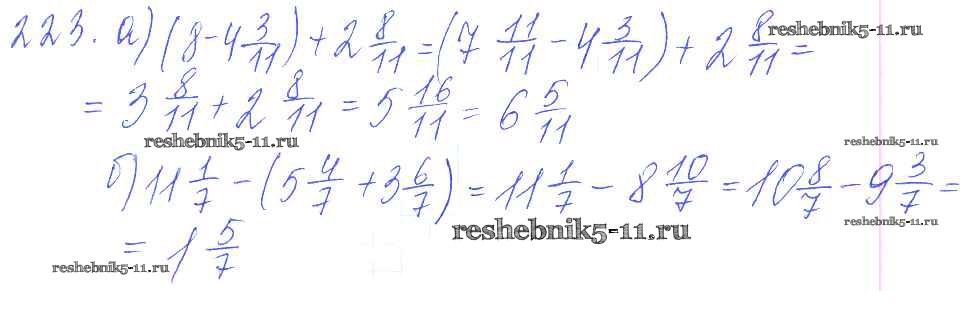 223. а) (8 - 4 3/11) + 2 8/11 = (7 11/11 - 4 3/11) + 2 8/11 =
reshebnik5-11.ru
= 3 8/11 + 2 8/11 = 5 16/11 = 6 5/11
reshebnik5-11.ru
reshebnik5-11.ru
б) 11 1/7 - (5 4/7 + 3 6/7) = 11 1/7 - 8 10/7 = 10 8/7 - 9 3/7 =
reshebnik5-11.ru
reshebnik5-11.ru
= 1 5/7
reshebnik5-11.ru